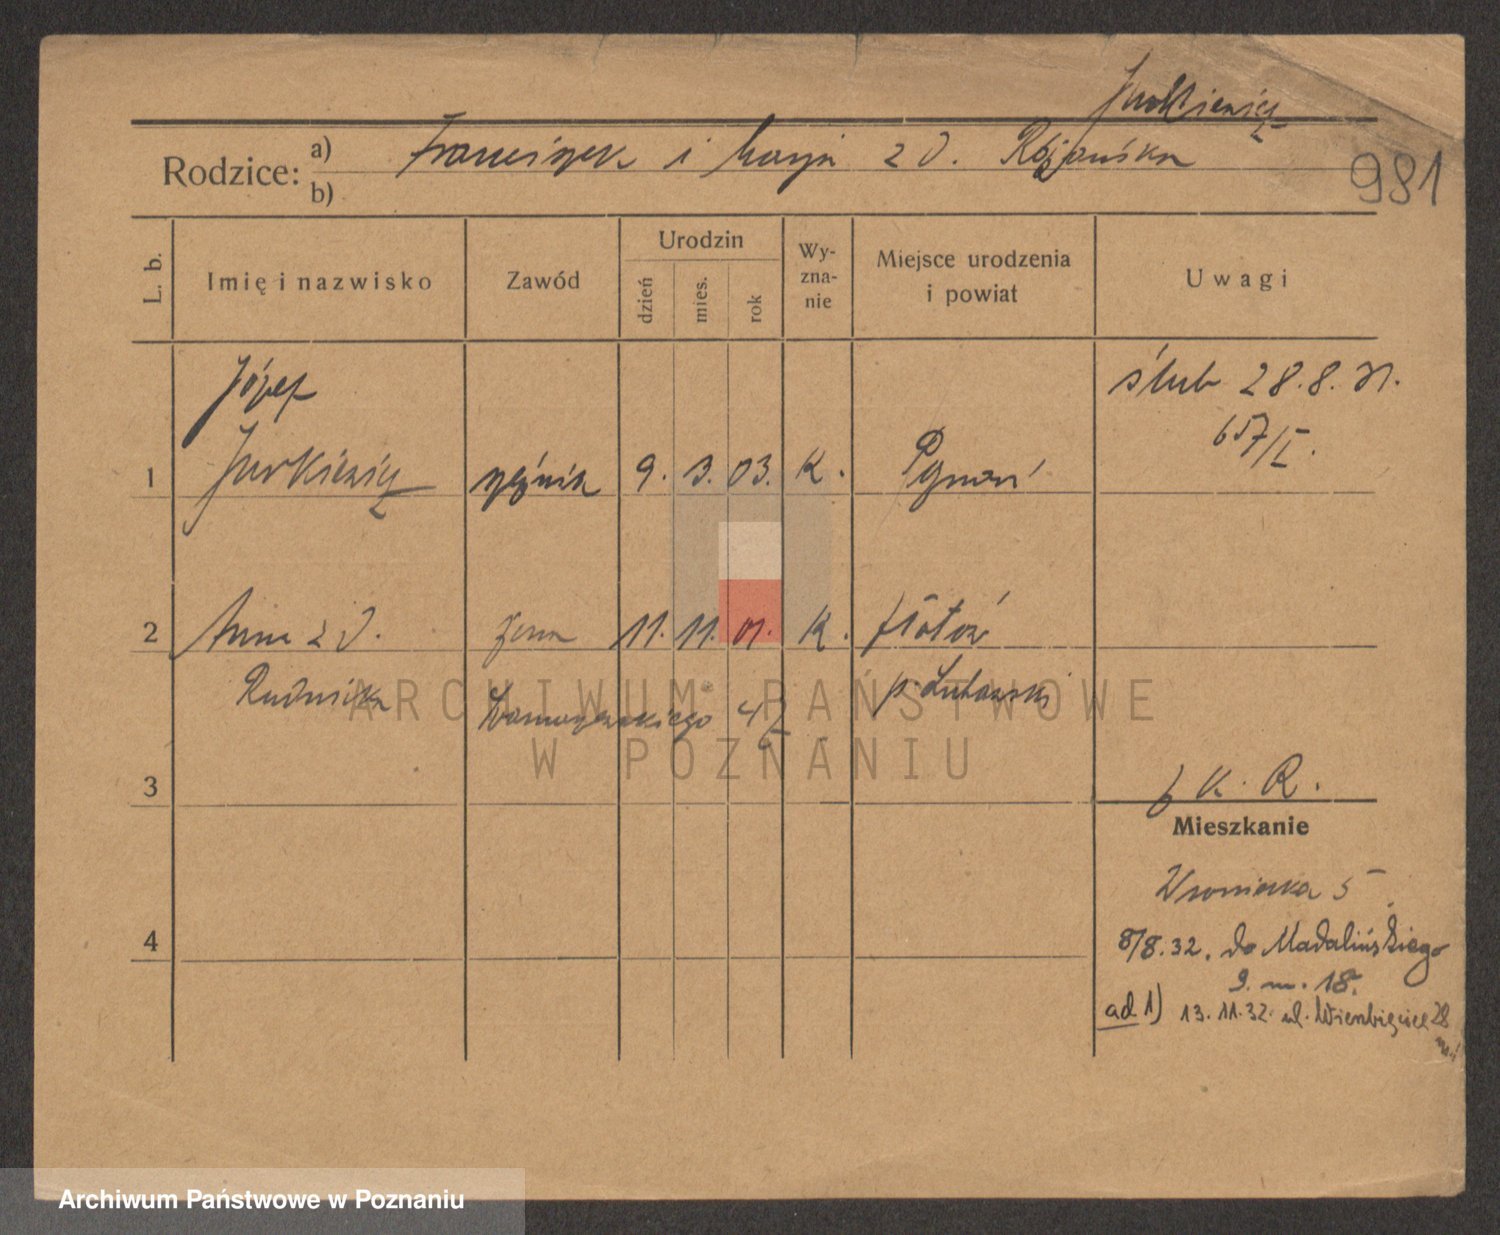 Jurkiewicz
Rodzice: a) Franciszek i Marja z d. Różańska
b)
981
L. b.
Imię i nazwisko
Zawód
Urodzin
dzień
mies.
rok
Wy-
zna-
nie
Miejsce urodzenia
i powiat
Uwagi
Józef
ślub 28.8.31.
657/I.
1 Jurkiewicz rzeźnik 9. 3. 03. K. Poznań
2 Anna z d. żona 11. 11. 01. K. Złotów
Rudnicka 4
p. Lubawski
3
b K. R.
Mieszkanie
Wroniecka 5
8/8.32. do Madalińskiego
4
9. m. 18.
ad 1) 13.11.32. ul. Wierzbięcice 28
ARCHIWUM PAŃSTWOWE
W POZNANIU
Archiwum Państwowe w Poznaniu